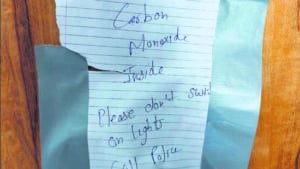 Carbon
Monoxide
Inside
Please don't swit
on lights
Call Police